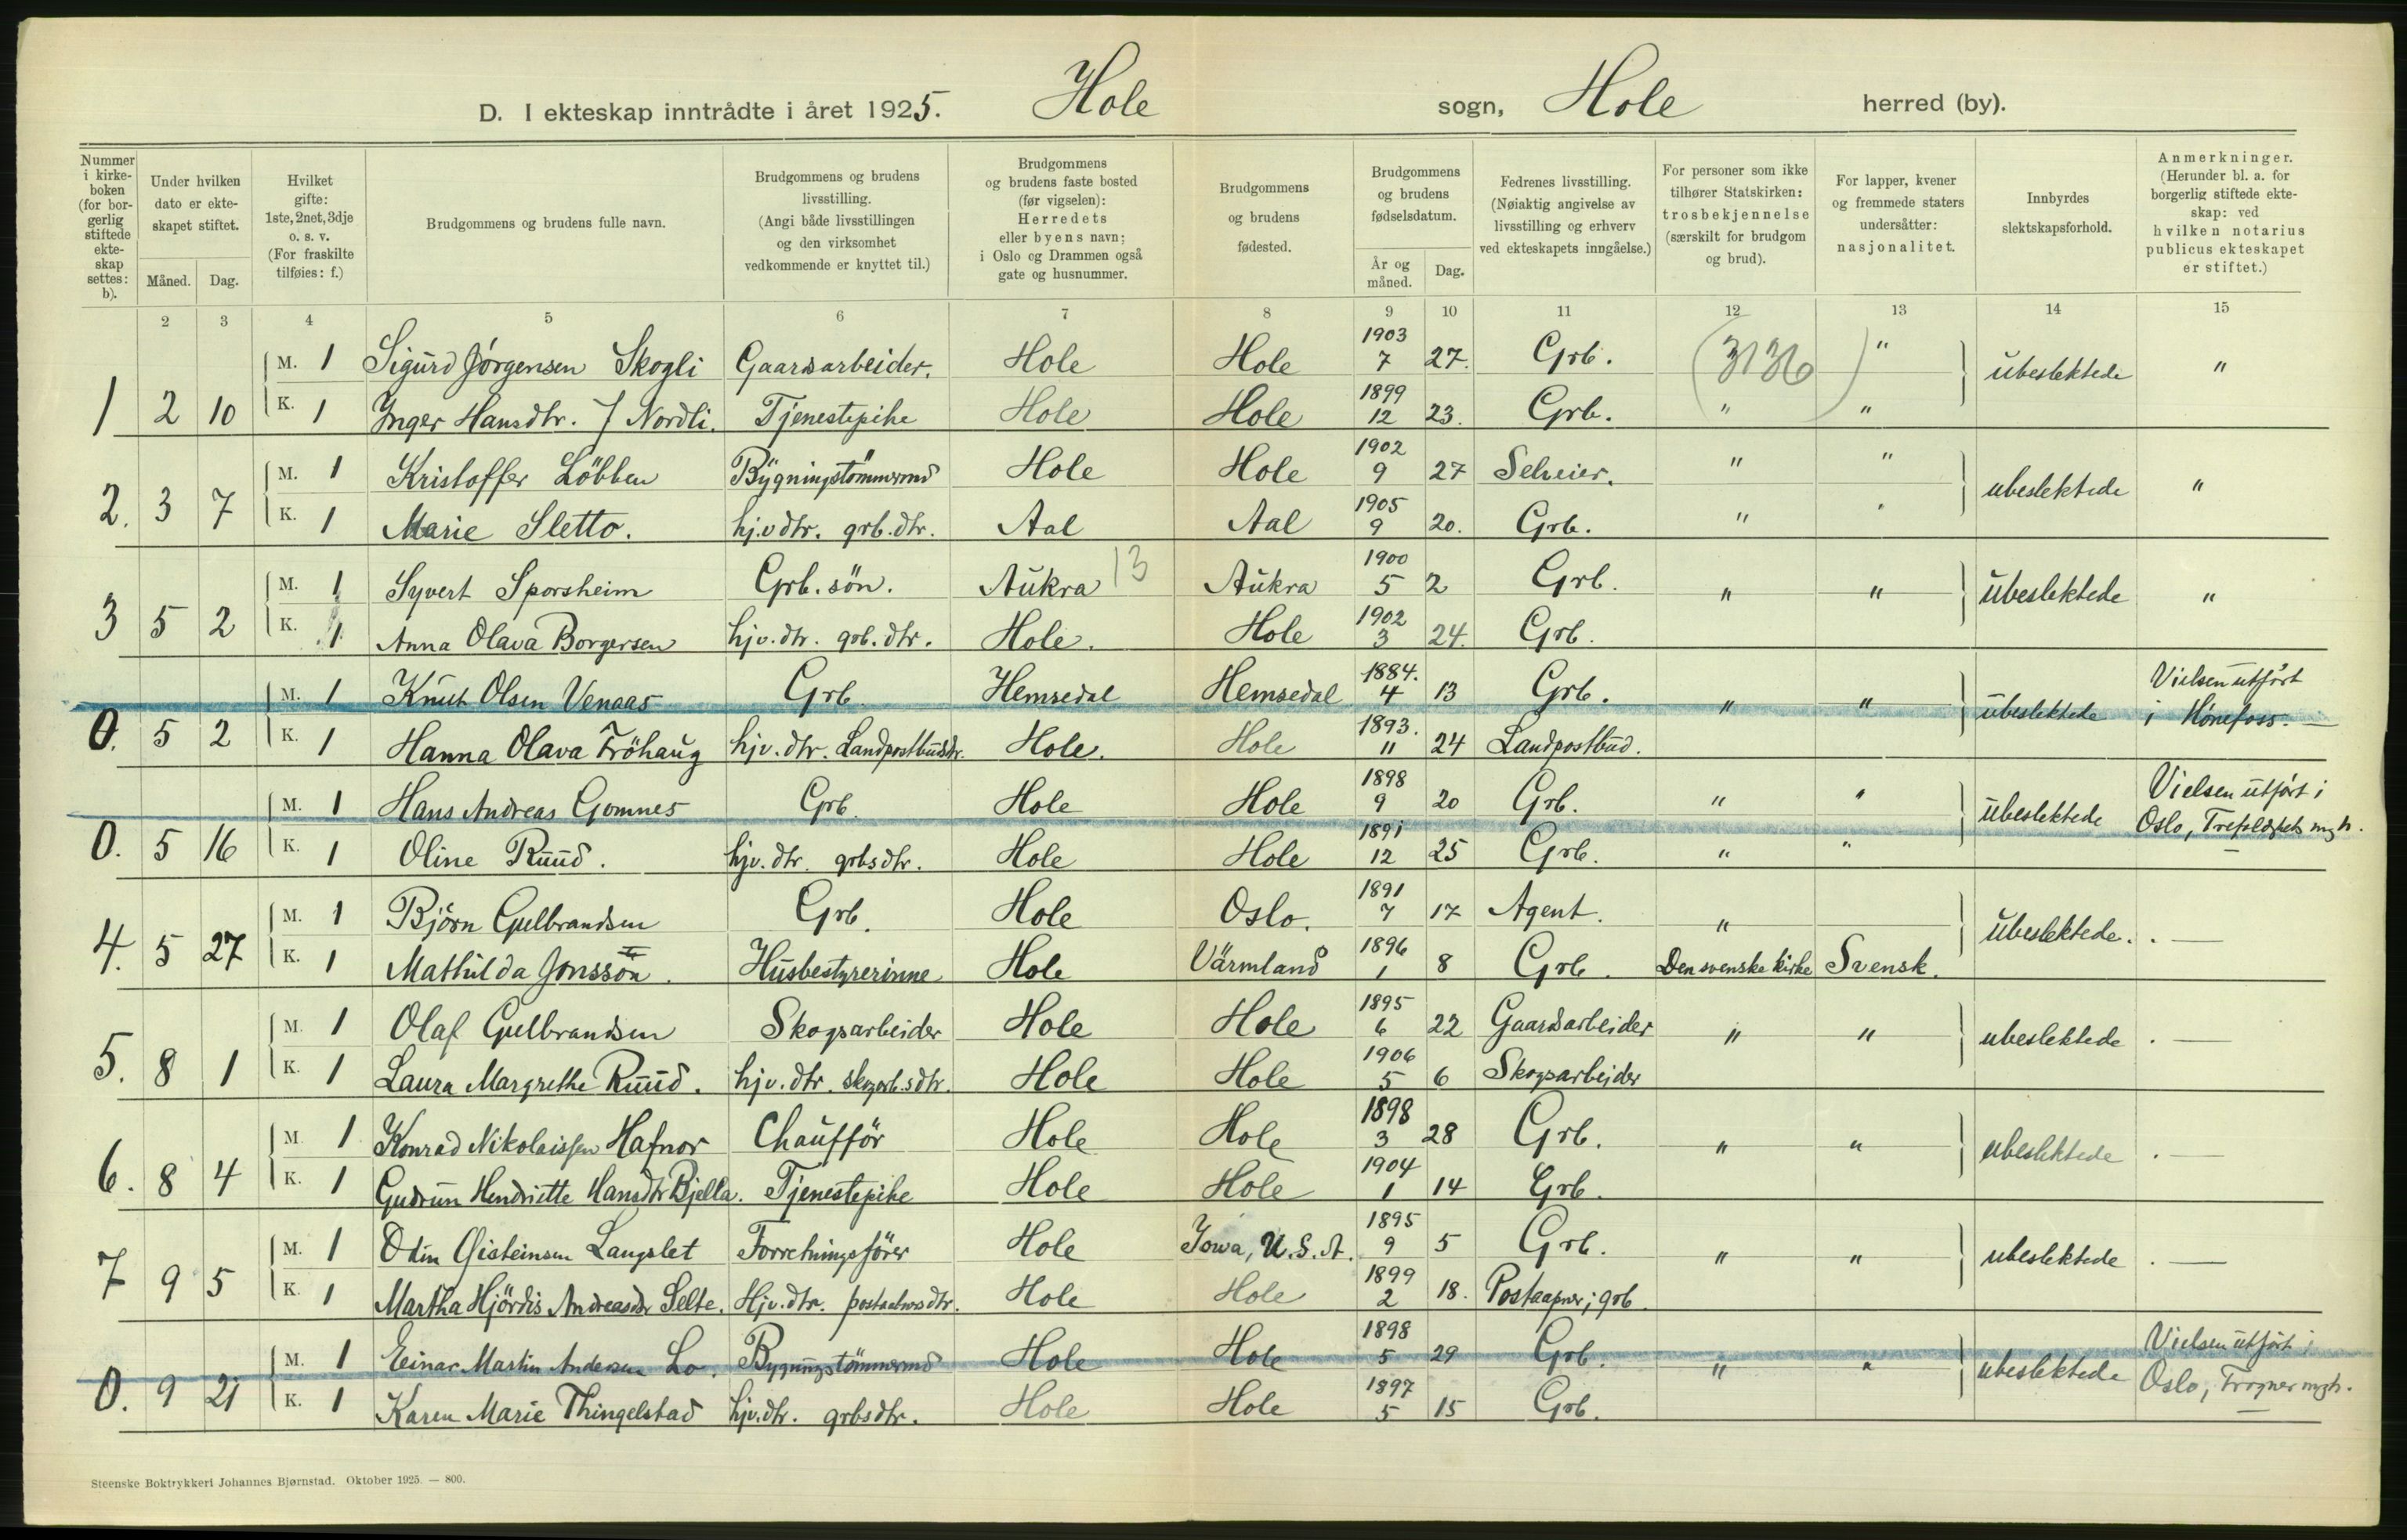 D. I ekteskap inntrådte i året 1925. Hole sogn, Hole herred (by).
Nummer i kirkeboken (for borgerlig stiftede ekteskap settes: b).
Under hvilken dato er ekteskapet stiftet.
Måned. Dag.
Hvilket gifte: 1ste, 2net, 3dje o. s. v. (For fraskilte tilføies: f.)
Brudgommens og brudens fulle navn.
Brudgommens og brudens livsstilling. (Angi både livsstillingen og den virksomhet vedkommende er knyttet til.)
Brudgommens og brudens faste bosted (før vigselen): Herredets eller byens navn; i Oslo og Drammen også gate og husnummer.
Brudgommens og brudens fødested.
Brudgommens og brudens fødselsdatum.
År og måned. Dag.
Fedrenes livsstilling. (Nøiaktig angivelse av livsstilling og erhverv ved ekteskapets inngåelse.)
For personer som ikke tilhører Statskirken: trosbekjennelse (særskilt for brudgom og brud).
For lapper, kvener og fremmede staters undersåtter: nasjonalitet.
Innbyrdes slektskapsforhold.
Anmerkninger. (Herunder bl. a. for borgerlig stiftede ekteskap: ved hvilken notarius publicus ekteskapet er stiftet.)
2 3 4 5 6 7 8 9 10 11 12 13 14 15
1 2 10 M. 1 Sigurd Jörgensen Skogli Gaardsarbeider. Hole Hole 1903 7 27. Grb. (3136) " ubeslektede "
K. 1 Inger Hansdtr. Nordli. Tjenestepike Hole Hole 1899 12 23. Grb. " "
2. 3 7 M. 1 Kristoffer Löbben Bygningstömmermd Hole Hole 1902 9 27 Selveier. " " ubeslektede "
K. 1 Marie Sletto. hjv. dtr. grb. dtr. Aal Aal 1905 9 20. Grb. " "
3 5 2 M. 1 Syvert Sporsheim Grb. sön. Aukra 13 Aukra 1900 5 2 Grb. " " ubeslektede "
K. 1 Anna Olava Borgersen hjv. dtr. grb. dtr. Hole. Hole 1902 3 24. Grb.
0. 5 2 M. 1 Knut Olsen Venaas Grb. Hemsedal Hemsedal 1884. 4 13 Grb. " " ubeslektede Vielsen utfört i Hönefoss. —
K. 1 Hanna Olava Fröhaug hjv. dtr. Landpostbudsdtr. Hole. Hole 1893. 11 24 Landpostbud.
0. 5 16 M. 1 Hans Andreas Gomnes Grb. Hole Hole 1898 9 20 Grb. " " ubeslektede Vielsen utfört i Oslo, Trefoldighets mgh.
K. 1 Oline Ruud. hjv. dtr. grbsdtr. Hole Hole 1891 12 25 Grb. " "
4. 5 27 M. 1 Björn Gulbrandsen Grb. Hole Oslo. 1891 7 17 Agent. " ubeslektede. . —
K. 1 Mathilda Jonsson. Husbestyrerinne Hole Värmland 1896 1 8 Grb. Den svenske kirke Svensk.
5. 8 1 M. 1 Olaf Gulbrandsen Skogsarbeider Hole Hole 1895 6 22 Gaardsarbeider " " ubeslektede . —
K. 1 Laura Margrethe Ruud. hjv. dtr. skogarb.sdtr. Hole Hole 1906 5 6 Skogsarbeider
6. 8 4 M. 1 Konrad Nikolaissen Hafnor Chaufför Hole Hole 1898 3 28 Grb. " " ubeslektede . —
K. 1 Gudrun Hendriette Hansdtr Bjella. Tjenestepike Hole Hole 1904 1 14 Grb.
7 9 5 M. 1 Odin Gisteinsen Langslet Forretningsförer Hole Iowa, U.S.A. 1895 9 5 Grb. " " ubeslektede . —
K. 1 Martha Hjördis Andreasdtr Selte. Hjv. dtr. Hole Hole 1899 2 18. Postaapner; grb.
0. 9 21 M. 1 Einar Martin Andersen Lo. Bygningstömmermd Hole Hole 1898 5 29 Grb. " " ubeslektede Vielsen utfört i Oslo, Frogner mgh.
K. 1 Karen Marie Thingelstad hjv. dtr. grbsdtr. Hole Hole 1897 5 15 Grb.
Steenske Boktrykkeri Johannes Bjørnstad. Oktober 1925. — 800.